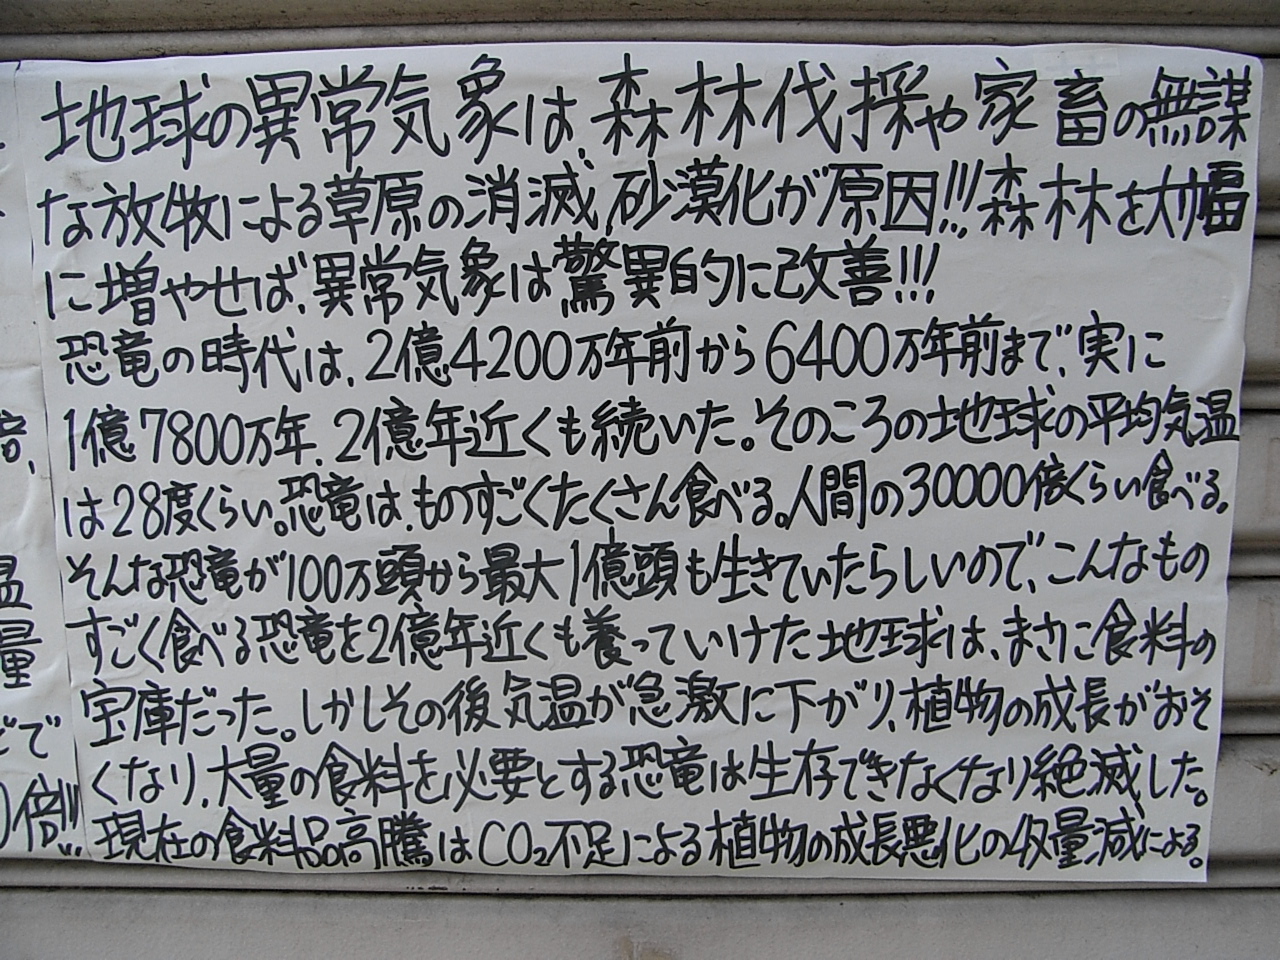 地球の異常気象は、森林伐採や家畜の無謀
な放牧による草原の消滅、砂漠化が原因!!!森林を大幅
に増やせば、異常気象は驚異的に改善!!!
恐竜の時代は、2億4200万年前から6400万年前まで、実に
1億7800万年、2億年近くも続いた。そのころの地球の平均気温
は28度くらい。恐竜は、ものすごくたくさん食べる。人間の30000倍くらい食べる。
そんな恐竜が100万頭から最大1億頭も生きていたらしいので、こんなもの
すごく食べる恐竜を2億年近くも養っていけた地球は、まさに食料の
宝庫だった。しかしその後気温が急激に下がり、植物の成長がおそ
くなり、大量の食料を必要とする恐竜は生存できなくなり絶滅した。
現在の食料品高騰はCO₂不足による植物の成長悪化の収量減による。
倍、
温
量
どで
0倍!!!